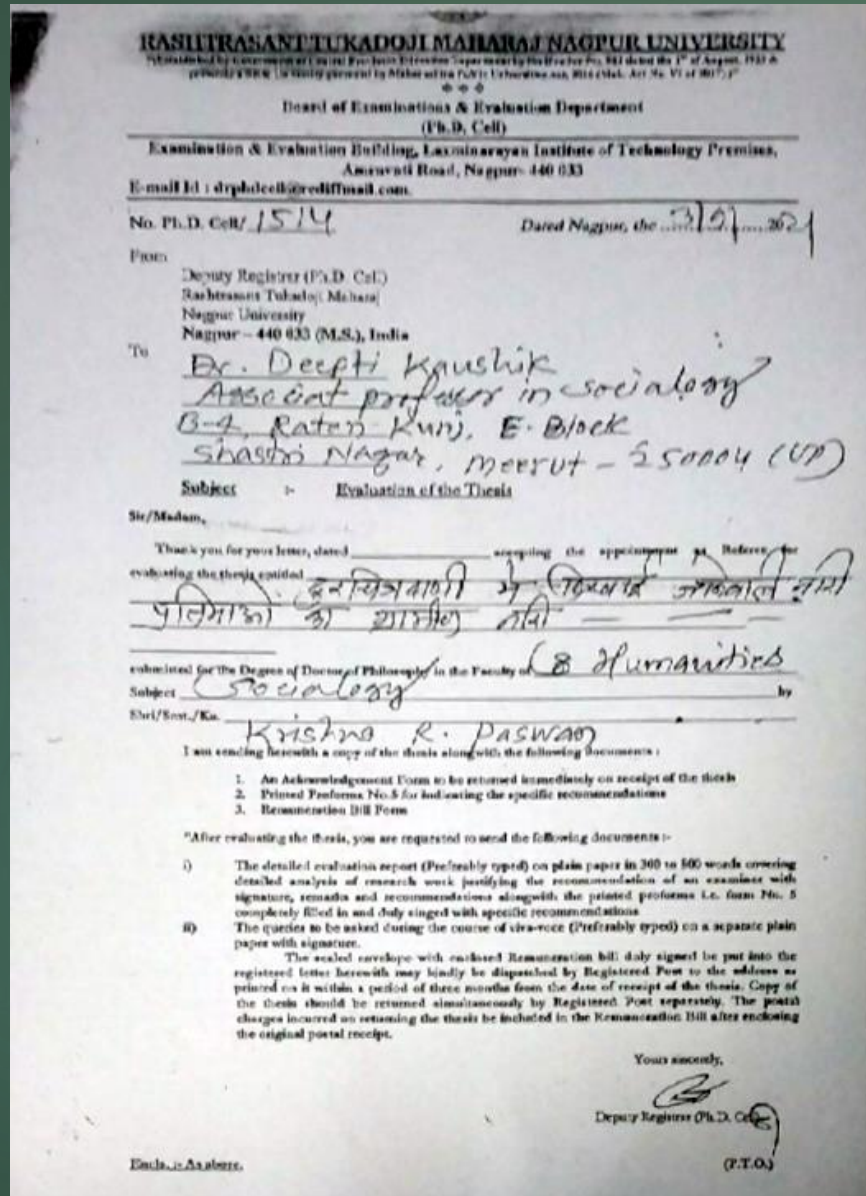 RASHTRASANT TUKADOJI MAHARAJ NAGPUR UNIVERSITY
Board of Examinations & Evaluation Department
(Ph.D, Cell)
Examination & Evaluation Building, Laxminarayan Institute of Technology Premises,
Amravati Road, Nagpur- 440 033
E-mail Id : drphdcell@rediffmail.com.
No. Ph.D. Cell/ 1514 Dated Nagpur, the
From
Deputy Registrar (Ph.D. Cell)
Rashtrasant Tukadoji Maharaj
Nagpur University
Nagpur – 440 033 (M.S.), India
To
Dr. Deepti Kaushik
Associat professor in socialogy
B-4, Raten Kunj, E. Block
Shastri Nagar, Meerut - 250004 (UP)
Subject :- Evaluation of the Thesis
Sir/Madam,
Thank you for your letter, dated accepting the appointment as Referee for
evaluating the thesis entitled में नारी
नारी
submitted for the Degree of Doctor of Philosophy in the Faculty of Humanities
Subject Socialogy by
Shri/Smt./Ku.
Krishna R. Paswan
I am sending herewith a copy of the thesis alongwith the following documents :
1. An Acknowledgement Form to be returned immediately on receipt of the thesis
2. Printed Proforma No.5 for indicating the specific recommendations
3. Remuneration Bill Form
"After evaluating the thesis, you are requested to send the following documents :-
i) The detailed evaluation report (Preferably typed) on plain paper in 300 to 500 words covering
detailed analysis of research work justifying the recommendation of an examiner with
signature, remarks and recommendations alongwith the printed proforma i.e. form No. 5
completely filled in and duly singed with specific recommendations
ii) The queries to be asked during the course of viva-voce (Preferably typed) on a separate plain
paper with signature.
The sealed envelope with enclosed Remuneration bill duly signed be put into the
registered letter herewith may kindly be dispatched by Registered Post to the address as
printed on it within a period of three months from the date of receipt of the thesis. Copy of
the thesis should be returned simultaneously by Registered Post separately. The postal
charges incurred on returning the thesis be included in the Remuneration Bill after enclosing
the original postal receipt.
Yours sincerely,
Deputy Registrar (Ph.D. Cell)
Encls. :- As above. (P.T.O.)